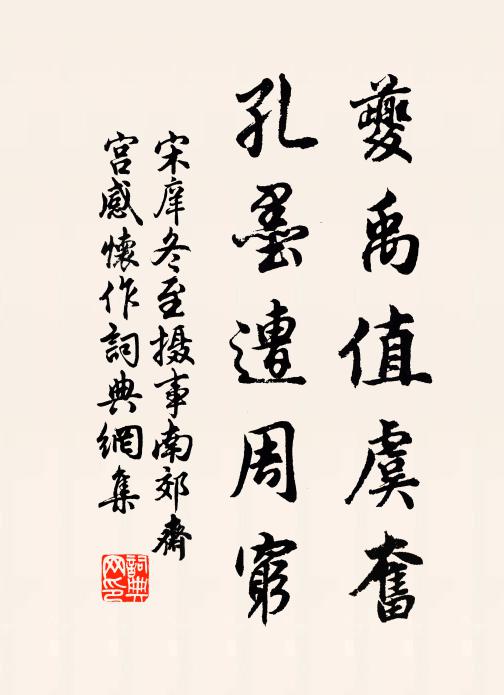 夔禹值虞奮
孔墨遭周窮
宋庠冬至摄事南郊齋
宮感懷作詞典網集
詞典网印